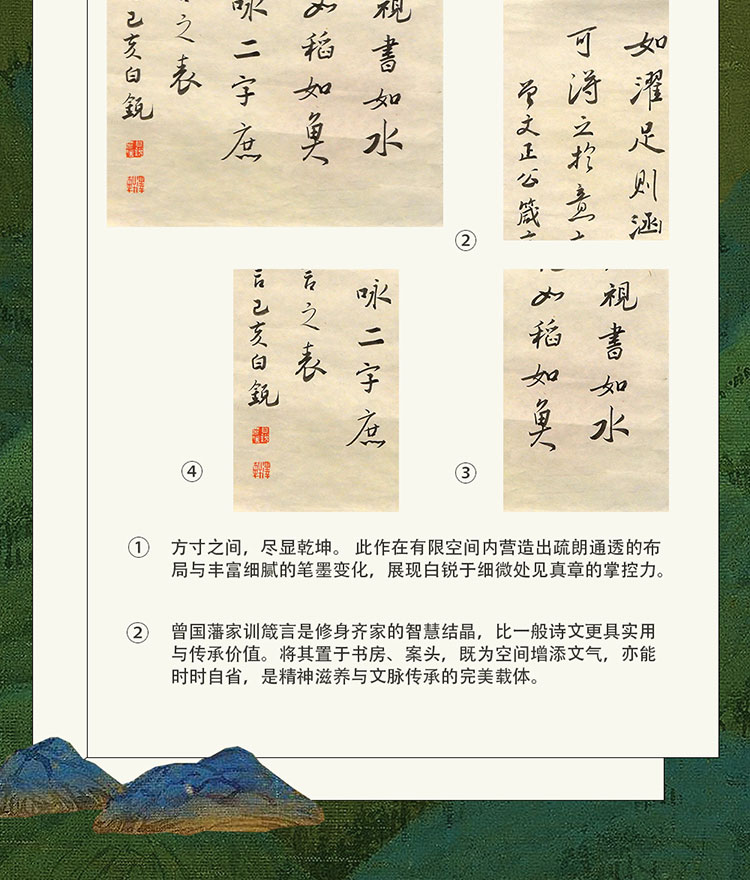 視書如水
如稻如魚
咏二字庶
之表
己亥白銳
如濯足則涵
可得之於意
曾文正公箴
②
咏二字庶
之表
己亥白銳
④
視書如水
如稻如魚
③
① 方寸之间，尽显乾坤。 此作在有限空间内营造出疏朗通透的布
局与丰富细腻的笔墨变化，展现白锐于细微处见真章的掌控力。
② 曾国藩家训箴言是修身齐家的智慧结晶，比一般诗文更具实用
与传承价值。将其置于书房、案头，既为空间增添文气，亦能
时时自省，是精神滋养与文脉传承的完美载体。